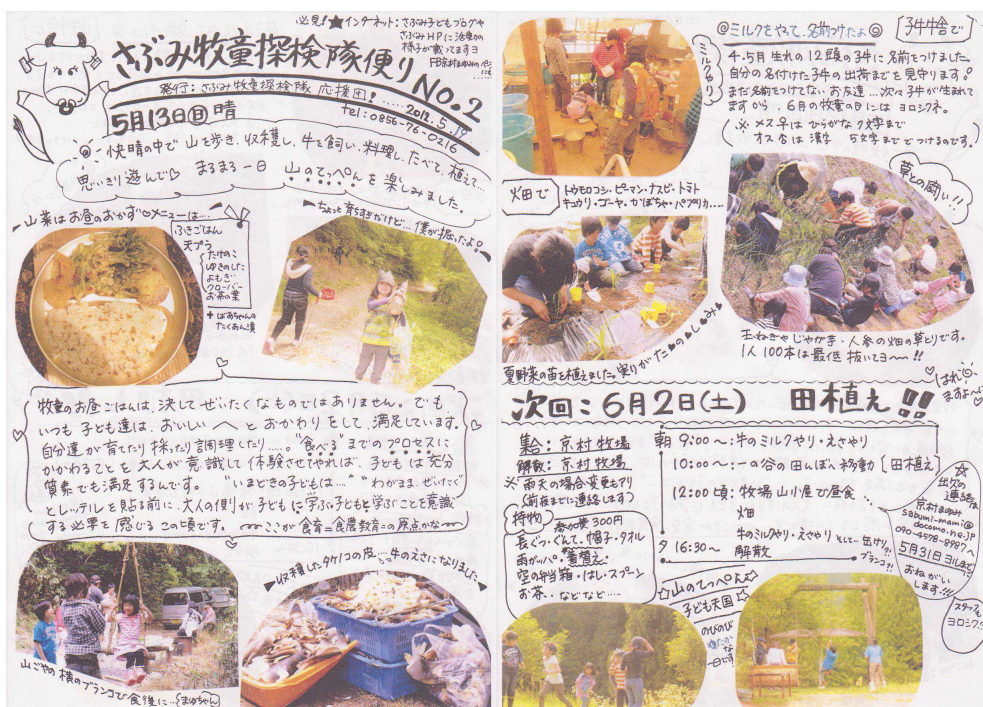 必見!★インターネット:さぶみ子どもブログや
さぶみHPに活動の
様子が載ってますヨ
さぶみ牧童探検隊便り No.2
発行:さぶみ牧童探検隊 応援団!……2012.5.19
tel:0856-76-0216
5月13日(日)晴
快晴の中で 山を歩き、収穫し、牛を飼い、料理し、たべて、植えて…
思いきり遊んで♡ まるまる一日 山のてっぺんを楽しみました。
山菜はお昼のおかず♡メニューは…
ふきごはん
天プラ
たけのこ
ゆきのした
よもぎ
クローバー
お茶の葉
+ばあちゃんの
たくあん漬
ちょっと育ちすぎだけど…僕が掘ったよ!
牧童のお昼ごはんは、決してぜいたくなものではありません。でも、
いつも子ども達は、おいしい〜とおかわりをして、満足しています。
自分達が育てたり採ったり調理したり……。"食べる"までのプロセスに
かかわることを大人が意識して体験させてやれば、子どもは充分
質素でも満足するんです。"いまどきの子どもは…""わがまま、ぜいたく"
とレッテルを貼る前に、大人の側が子どもに学ぶ、子どもと学ぶことを意識
する必要を感じるこの頃です。〜ここが食育=食農教育=の原点かな〜
収穫したタケノコの皮…牛のえさになりました
山ごやの横のブランコで食後に…(まゆちゃん)
ミルクやり
◎ミルクをやって、名前つけたよ◎
子牛舎で
4・5月生れの12頭の子牛に名前をつけました。
自分の名付けた子牛の出荷までを見守ります!
まだ名前をつけてないお友達…次々子牛が生まれて
ますから、6月の牧童の日にはヨロシクネ。
(※メス牛はひらがな7文字まで
オス牛は漢字 5文字までつけるのです。)
畑で
トウモロコシ・ピーマン・ナスビ・トマト
キュウリ・ゴーヤ・かぼちゃ・パプリカ……
草との闘い!!
夏野菜の苗を植えました。実りがた♥の♥し♥み♥
玉ねぎやじゃが芋・人参の畑の草とりです。
1人100本は最低抜いてヨ〜〜!!
はれ
ますよ〜
次回:6月2日(土) 田植え!!
集合:京村牧場
解散:京村牧場
※雨天の場合変更もアリ
(前夜までに連絡します)
持物
参加費300円
長ぐつ・ぐんて・帽子・タオル
雨ガッパ・着替え・
空の弁当箱・はし・スプーン
お茶・などなど……
朝 9:00〜:牛のミルクやり・えさやり
10:00〜:一の谷の田んぼへ移動〔田植え〕
12:00頃:牧場山小屋で昼食
畑
牛のミルクやり・えさやり
夕 16:30〜 解散
ブランコ?!
☆出欠の
連絡は
京村まゆみ
sabumi-mami@
docomo.ne.jp
090-4598-8987へ
5月31日ヨルまで
おねがい
します!!!
スタッフも
ヨロシク!
☆山のてっぺん☆
子ども天国
のびのび
ゆたかな
一日です